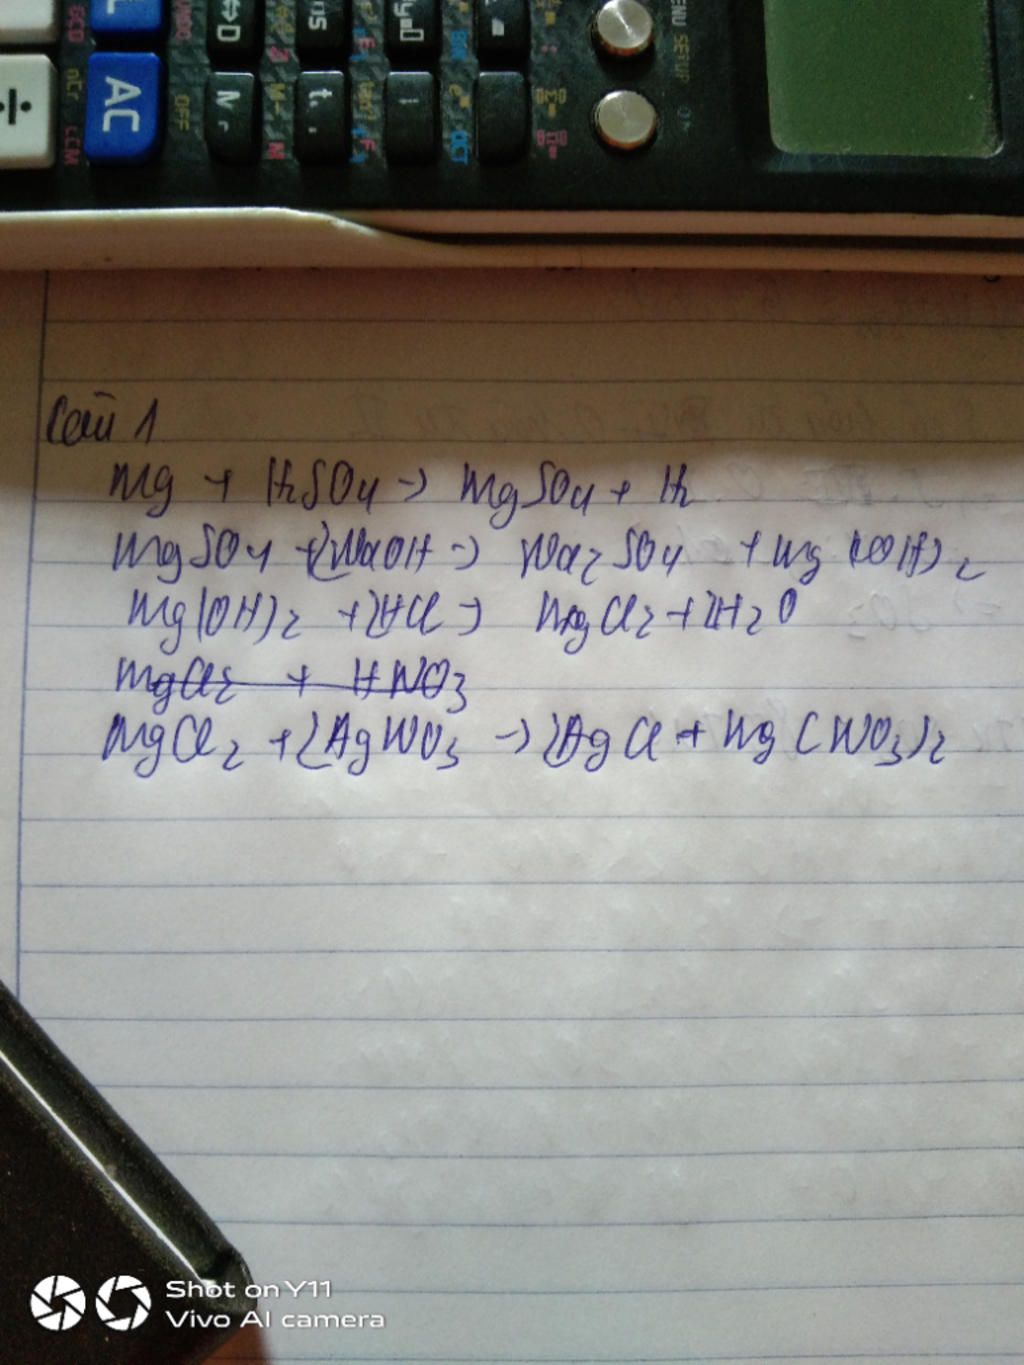 AC
OFF
MENU SETUP
Câu 1
Mg + H2SO4 -> MgSO4 + H2
MgSO4 + 2NaOH -> Na2SO4 + Mg(OH)2
Mg(OH)2 + 2HCl -> MgCl2 + 2H2O
MgCl2 + HNO3
MgCl2 + 2AgNO3 -> 2AgCl + Mg(NO3)2
Shot on Y11
Vivo AI camera